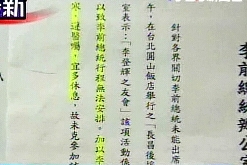 新
李前總統辦公
針對各界關切李前總統未能出席
午,在台北圓山飯店舉行之「長昌後援
室表示:「李登輝之友會」該項活動係
以致李前總統行程無法安排。加以李前
寒,遵醫囑,宜多休息,故未克參加